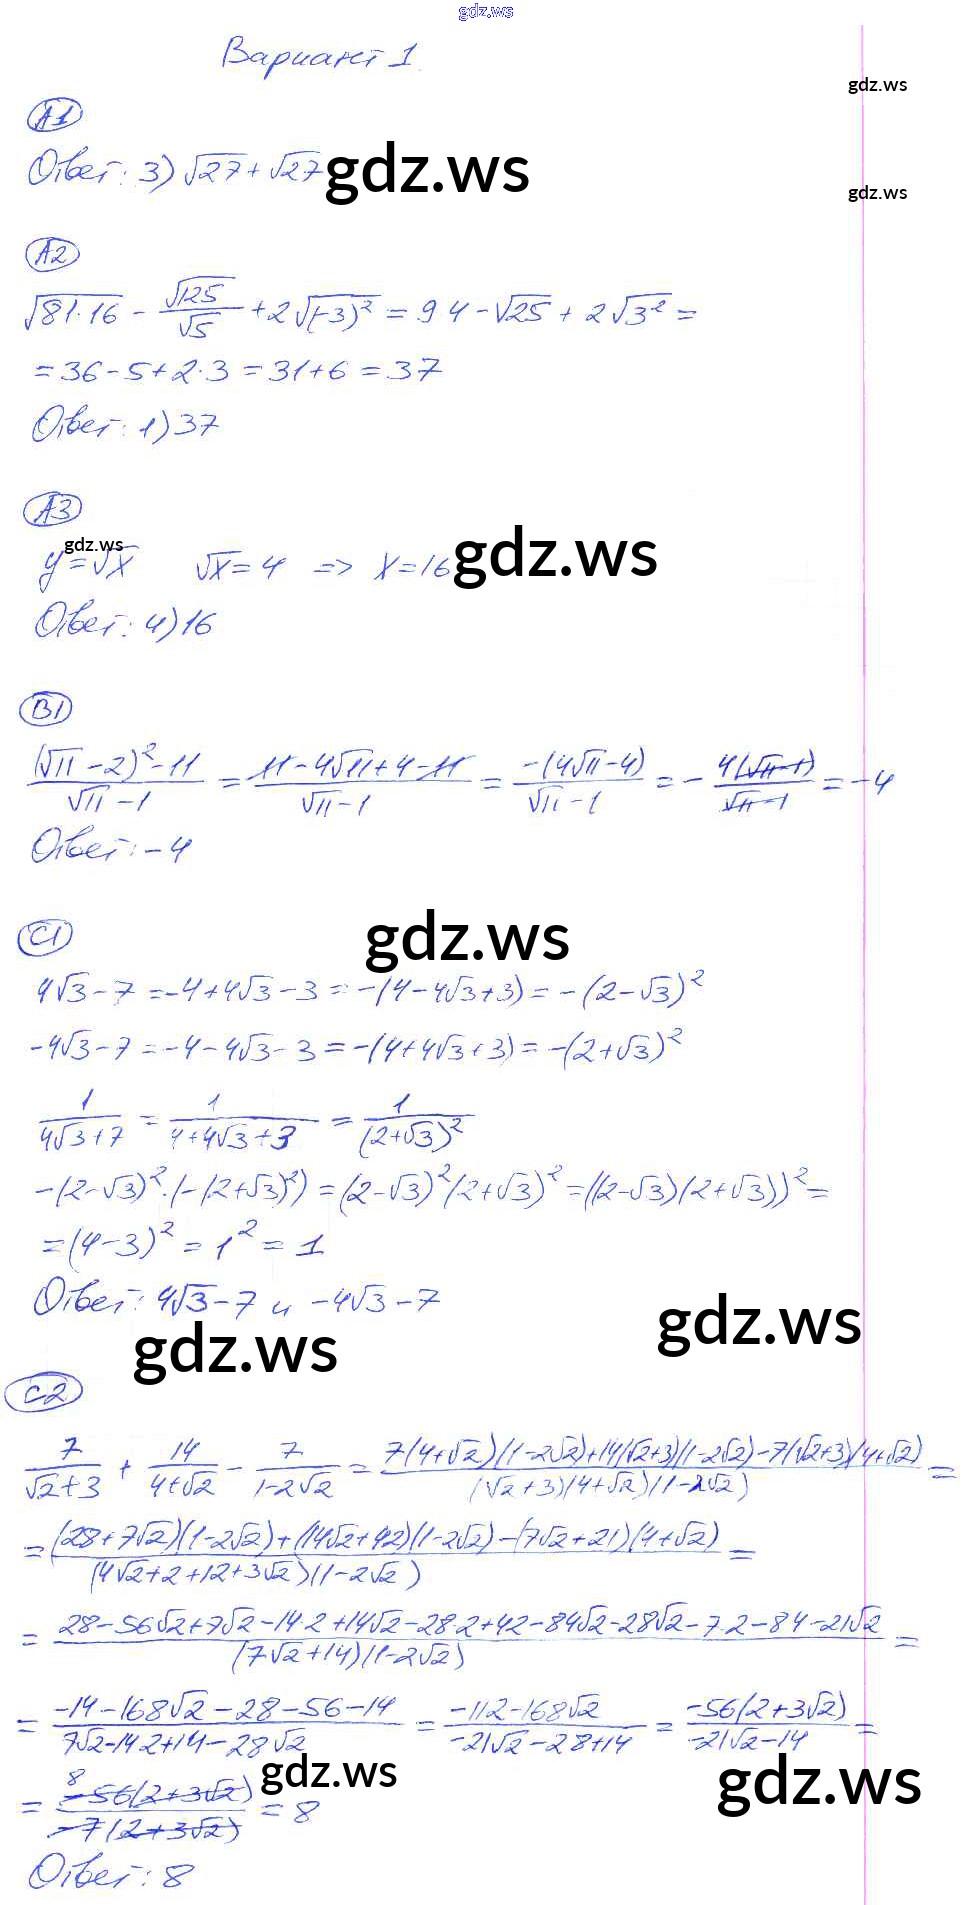 gdz.ws
Вариант 1.
gdz.ws
А1
Ответ: 3) √27 + √27
gdz.ws
gdz.ws
А2
√81·16 - √125/√5 + 2√(-3)² = 9·4 - √25 + 2√3² =
= 36 - 5 + 2·3 = 31 + 6 = 37
Ответ: 1) 37
А3
gdz.ws
y = √x √x = 4 => x = 16
gdz.ws
Ответ: 4) 16
В1
((√11 - 2)² - 11)/(√11 - 1) = (11 - 4√11 + 4 - 11)/(√11 - 1) = (-(4√11 - 4))/(√11 - 1) = - (4(√11 - 1))/(√11 - 1) = -4
Ответ: -4
С1
gdz.ws
4√3 - 7 = -4 + 4√3 - 3 = -(4 - 4√3 + 3) = -(2 - √3)²
-4√3 - 7 = -4 - 4√3 - 3 = -(4 + 4√3 + 3) = -(2 + √3)²
1/(4√3 + 7) = 1/(4 + 4√3 + 3) = 1/(2 + √3)²
-(2 - √3)²·(-(2 + √3)²) = (2 - √3)²(2 + √3)² = ((2 - √3)(2 + √3))² =
= (4 - 3)² = 1² = 1
Ответ: 4√3 - 7 и -4√3 - 7
gdz.ws
gdz.ws
С2
7/(√2 + 3) + 14/(4 + √2) - 7/(1 - 2√2) = (7(4 + √2)(1 - 2√2) + 14(√2 + 3)(1 - 2√2) - 7(√2 + 3)(4 + √2))/((√2 + 3)(4 + √2)(1 - 2√2)) =
= ((28 + 7√2)(1 - 2√2) + (14√2 + 42)(1 - 2√2) - (7√2 + 21)(4 + √2))/((4√2 + 2 + 12 + 3√2)(1 - 2√2)) =
= (28 - 56√2 + 7√2 - 14·2 + 14√2 - 28·2 + 42 - 84√2 - 28√2 - 7·2 - 84 - 21√2)/((7√2 + 14)(1 - 2√2)) =
= (-14 - 168√2 - 28 - 56 - 14)/(7√2 - 14·2 + 14 - 28√2) = (-112 - 168√2)/(-21√2 - 28 + 14) = (-56(2 + 3√2))/(-21√2 - 14) =
gdz.ws
gdz.ws
= 8 (-56(2 + 3√2))/(-7(2 + 3√2)) = 8
Ответ: 8